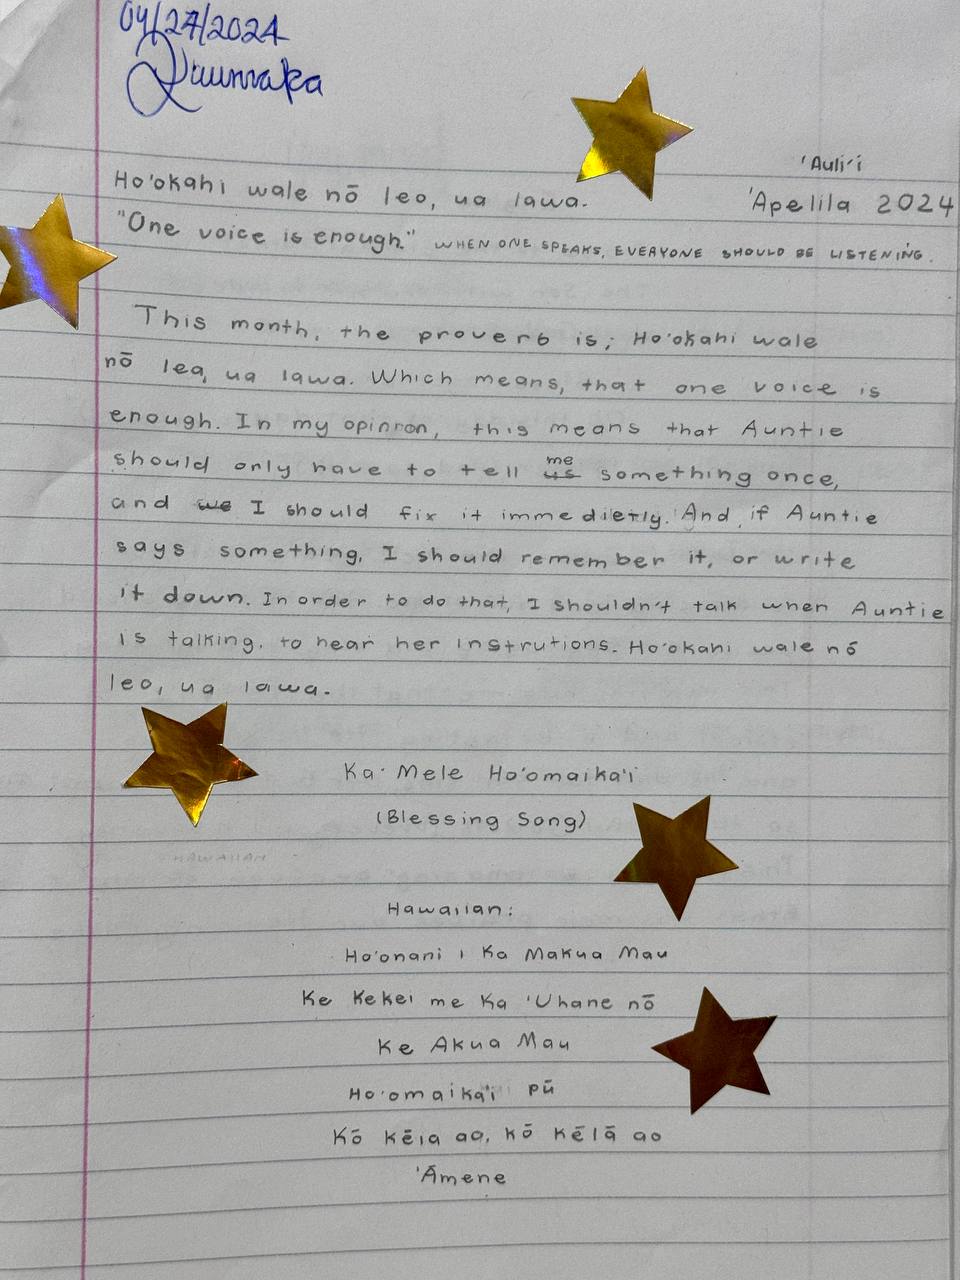 04/27/2024
'Auli'i
Ho'okahi wale nō leo, ua lawa.
'Apelila 2024
"One voice is enough." WHEN ONE SPEAKS, EVERYONE SHOULD BE LISTENING.
This month, the proverb is; Ho'okahi wale
nō leo, ua lawa. Which means, that one voice is
enough. In my opinion, this means that Auntie
should only have to tell us me something once,
and we I should fix it immedietly. And, if Auntie
says something, I should remember it, or write
it down. In order to do that, I shouldn't talk when Auntie
is talking, to hear her instrutions. Ho'okahi wale nō
leo, ua lawa.
Ka Mele Ho'omaika'i
(Blessing Song)
Hawaiian:
Ho'onani i Ka Makua Mau
Ke Kekei me Ka 'Uhane nō
Ke Akua Mau
Ho'omaika'i pū
Kō kēia ao, kō kēlā ao
'Āmene